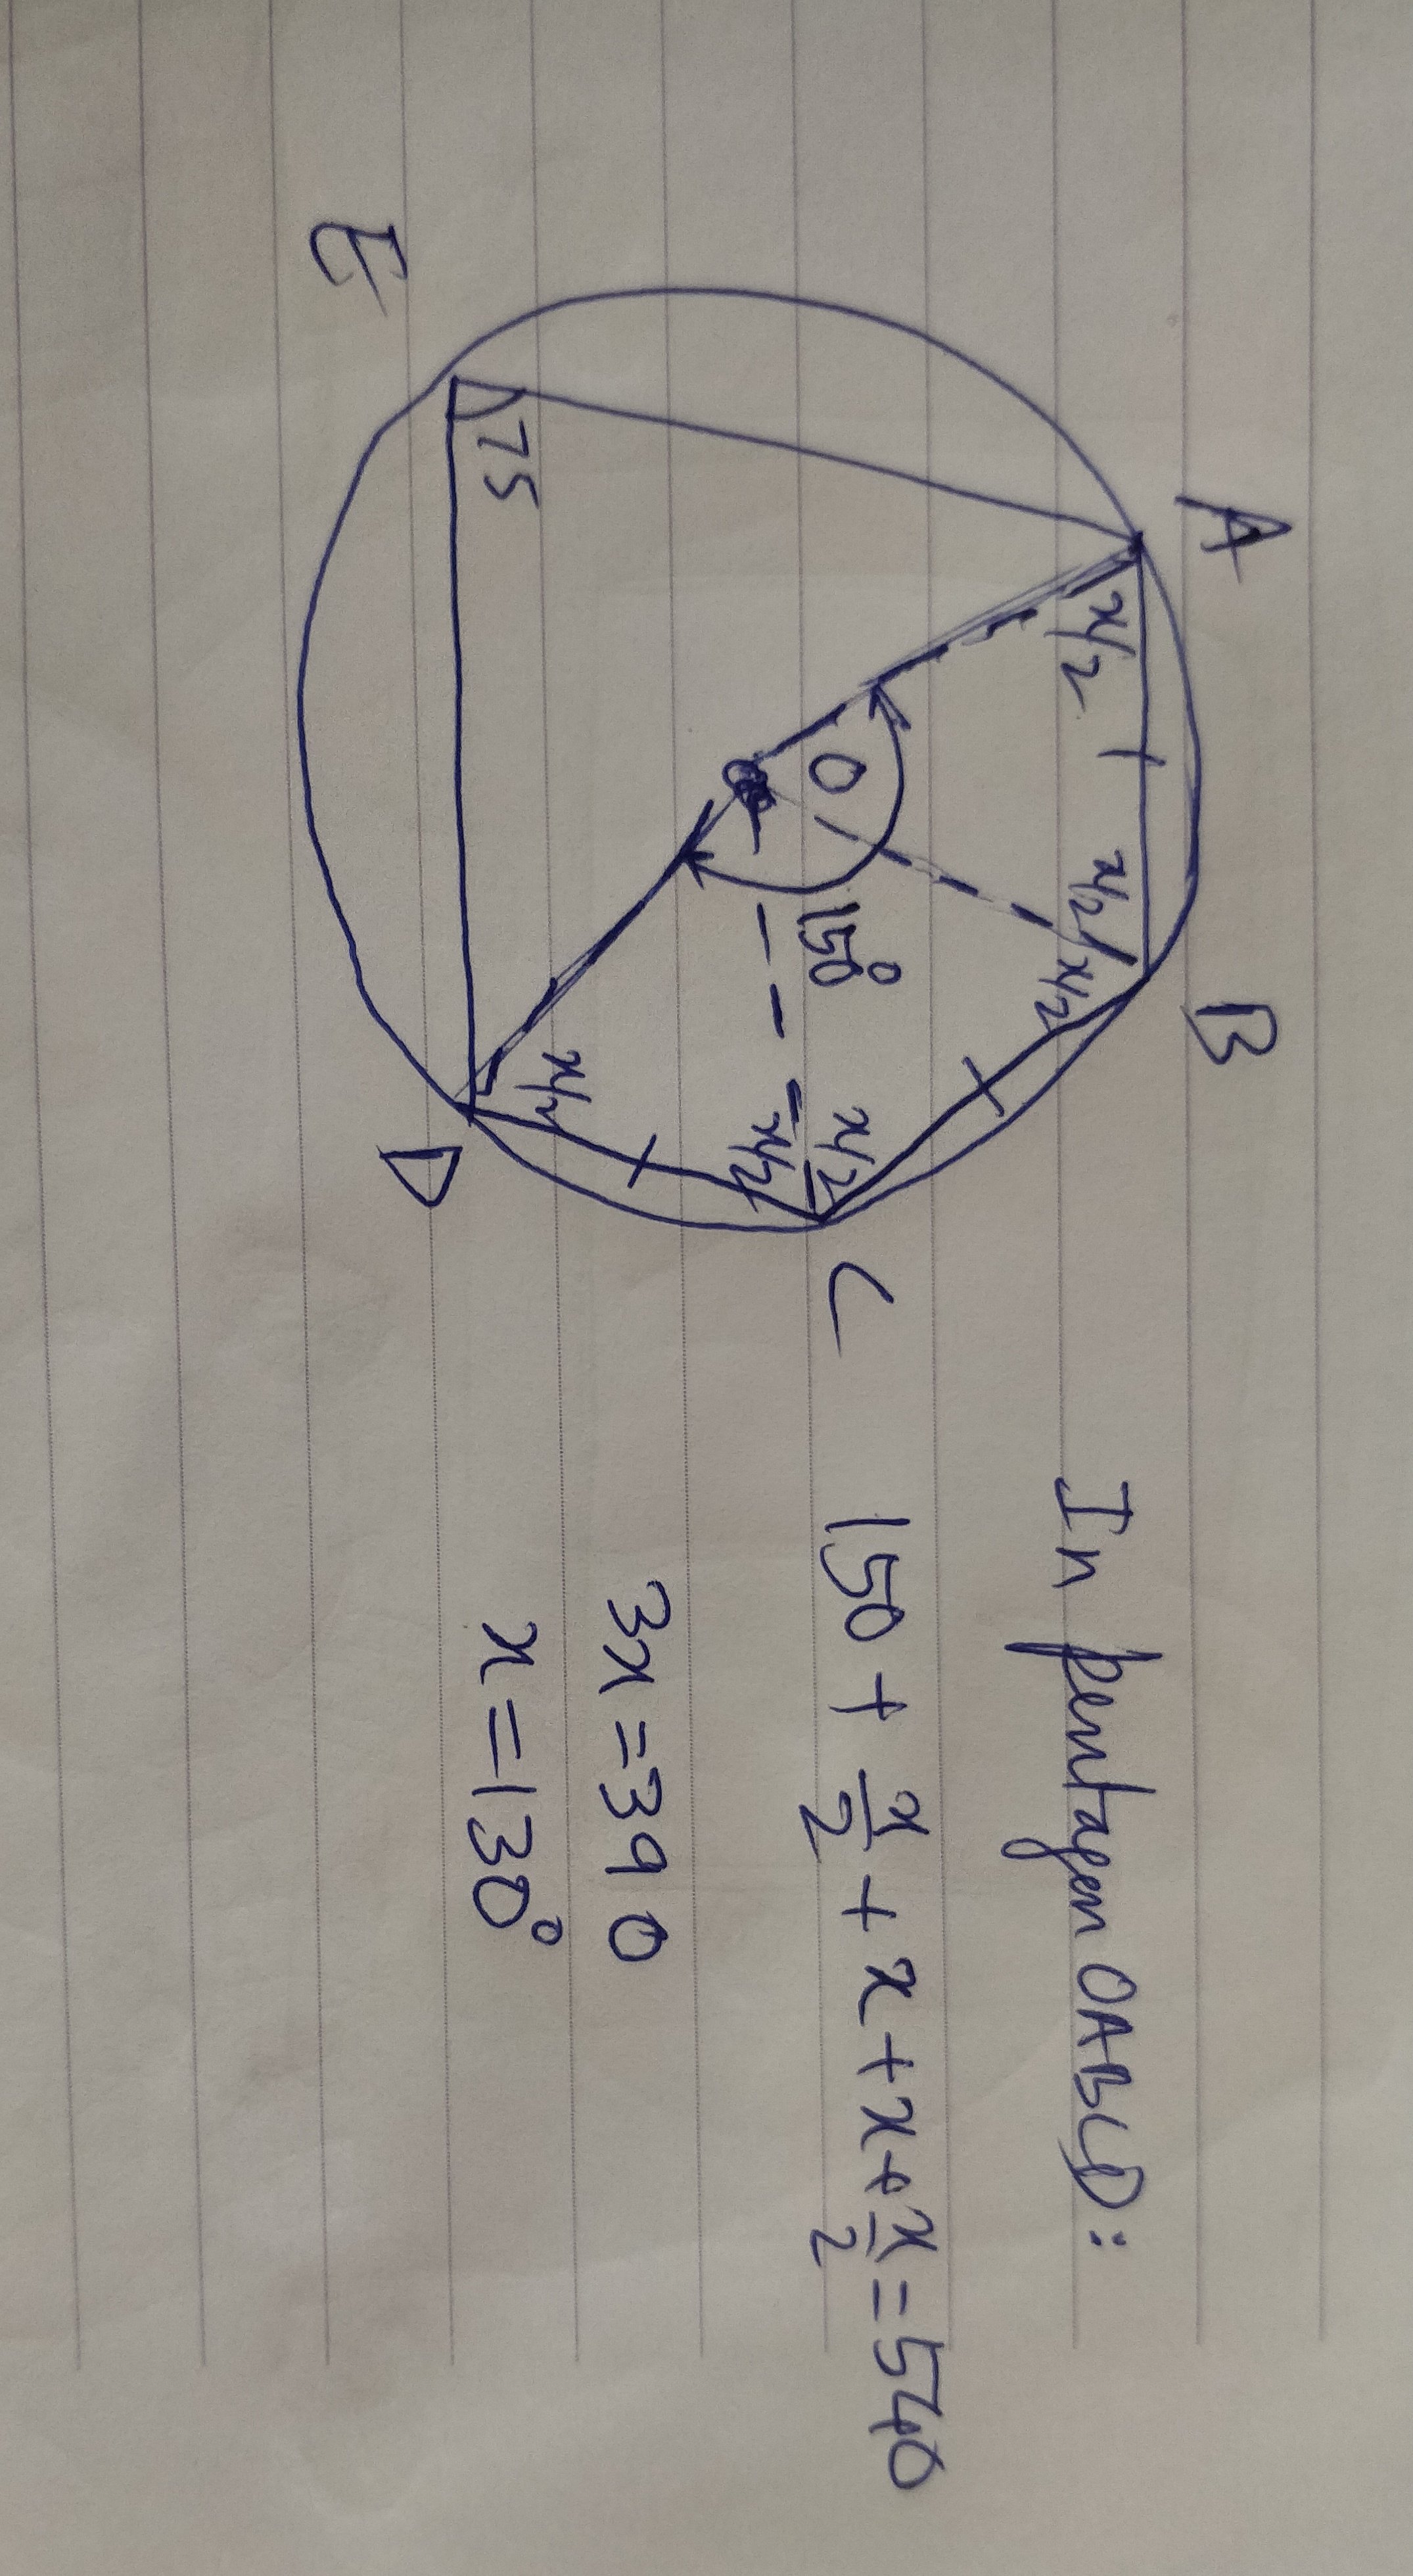 A
B
x/2
x/2
x/2
O
150°
x/2
C
x/2
x/2
75
E
D
In pentagon OABCD:
150 + x/2 + x + x + x/2 = 540
3x = 390
x = 130°